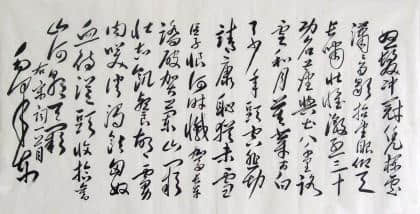 怒髮冲冠凭栏處
潇雨歇抬望眼仰天
长啸壮怀激烈三十
功名尘与土八千里路
云和月莫等闲白
了少年头空悲切
靖康耻犹未雪
臣子恨何时灭驾长车
踏破贺兰山阙
壮志飢餐胡虏
肉笑谈渴饮匈奴
血待从头收拾旧
山河朝天阙
右宋词一首